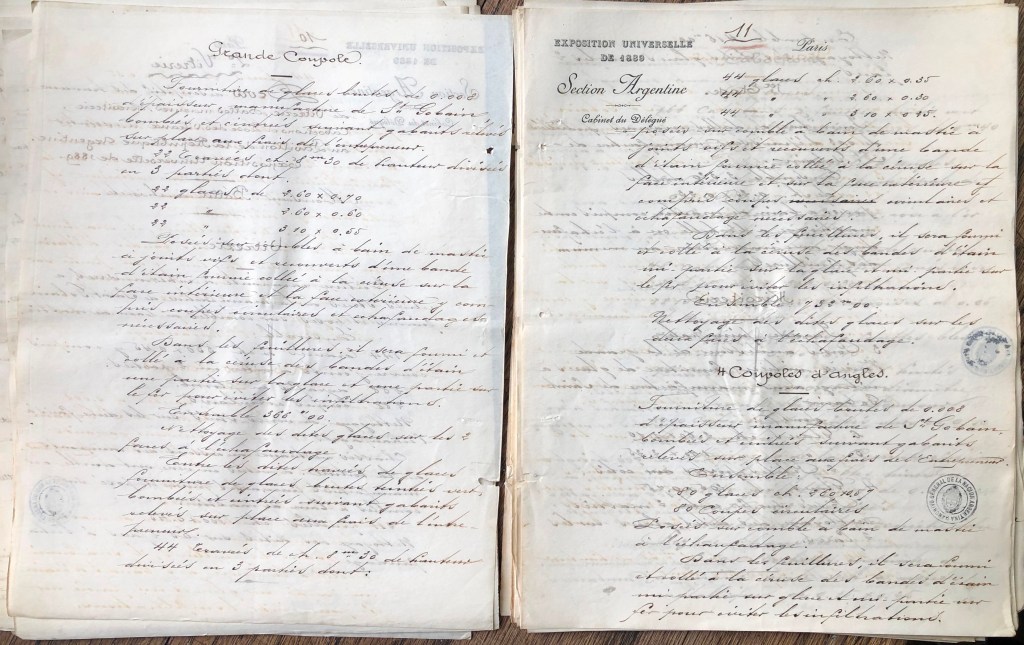 10
Grande Coupole.
Fourniture de glaces brutes de 0.008
d'épaisseur, manufacture de St Gobain,
bombées et cintrées suivant gabarits relevés
sur place aux frais de l'entrepreneur.
22 Travées ch. 8m30 de hauteur divisées
en 3 parties dont
22 glaces de 2.60 x 0.70
22 " 2.60 x 0.60
22 " 3 10 x 0.55
Posées sur combles à bain de mastic
à joints vifs et recouverts d'une bande
d'étain fournie collée à la céruse sur la
face intérieure et la face extérieure y com-
pris coupes circulaires et échafaudages
nécessaires.
Dans les feuillures, il sera fourni et
collé à la céruse des bandes d'étain
une partie sur la glace et une partie sur
le fer pour éviter les infiltrations.
Ensemble 366 m 00
Nettoyage des dites glaces sur les 2
faces à l'échafaudage
Entre les dites travées de glaces
fourniture de glaces brutes teintées vert
bombées et cintrées suivant gabarits
relevés sur place aux frais de l'entre-
preneur.
44 Travées de ch. 8 m 30 de hauteur
divisées en 3 parties dont:
11
EXPOSITION UNIVERSELLE
DE 1889
Paris
Section Argentine
Cabinet du Délégué
44 glaces ch. 2 60 x 0.35
44 " " 2.60 x 0.30
44 " " 3 10 x 0.25.
posées sur comble à bain de mastic à
joints vifs et recouverts d'une bande
d'étain fournie collée à la céruse sur la
face intérieure et sur la face extérieure y
compris coupes circulaires et
échafaudage nécessaires
Dans les feuillures, il sera fourni
et collé à la céruse des bandes d'étain
mi-partie sur la glace et mi-partie sur
le fer pour éviter les infiltrations.
Nettoyage des dites glaces sur les
deux faces à l'échafaudage.
4 Coupoles d'Angles.
Fourniture de glaces brutes de 0.008
d'épaisseur, manufacture de St Gobain,
bombées et cintrées suivant gabarits
relevés sur place aux frais de l'Entrepreneur.
Ensemble
80 glaces ch.
80 Coupes circulaires
Posées sur comble à bain de mastic
à l'échafaudage.
Dans les feuillures, il sera fourni
et collé à la céruse des bandes d'étain
mi-partie sur glace et mi-partie sur
fer pour éviter les infiltrations.